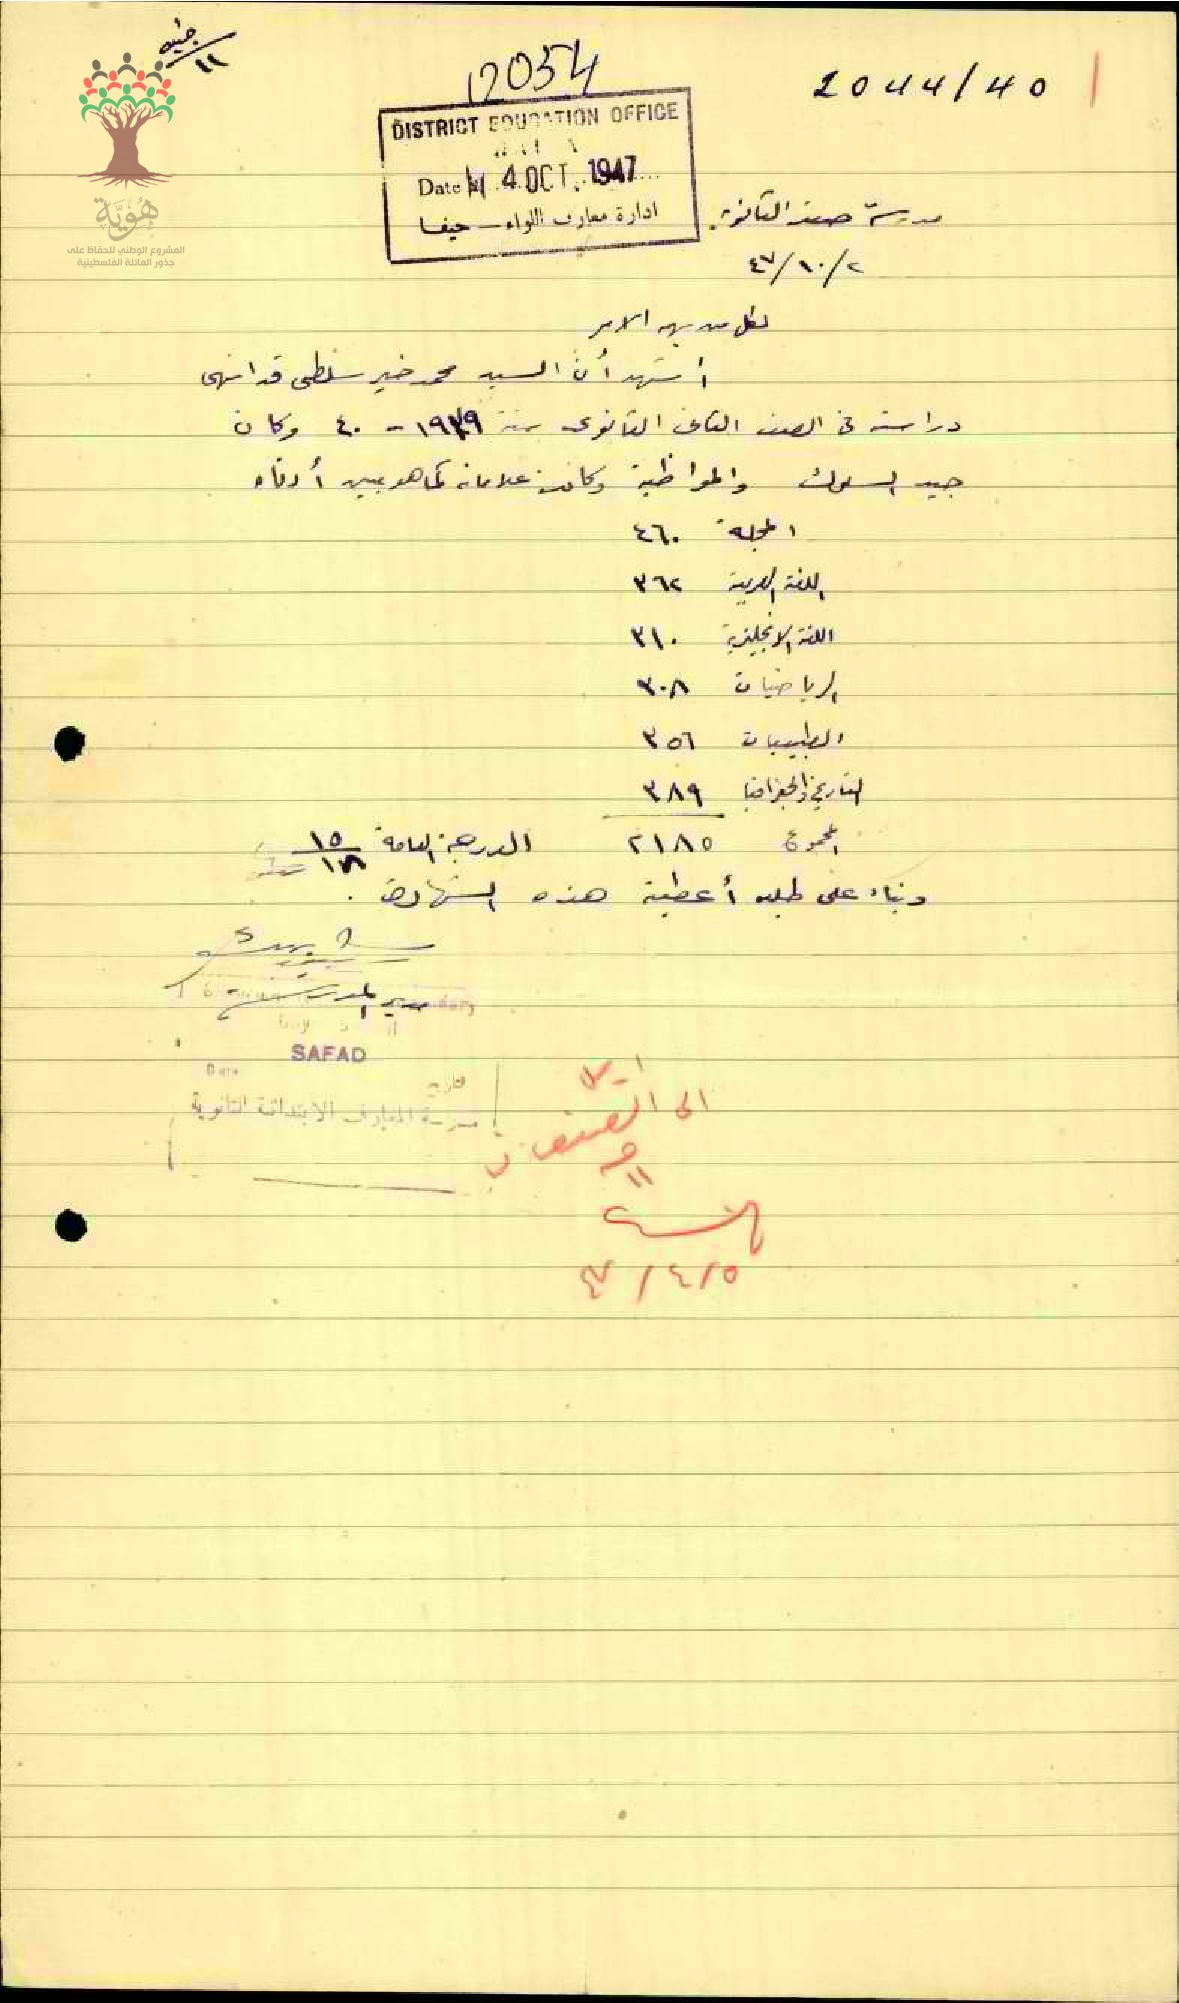 جنيه
١١
12054
2044/40
DISTRICT EDUCATION OFFICE
Date 4 OCT. 1947
ادارة معارف اللواء - حيفا
هُوِيَّة
المشروع الوطني للحفاظ على
جذور العائلة الفلسطينية
مدرسة صفد الثانوية
٤٧/١٠/٢
لكل من يهمه الامر
أشهد أن السيد محمد خير سلطي قد انهى
دراسته في الصف الثاني الثانوي سنة ١٩٣٩ - ٤٠ وكان
جيد السلوك والمواظبة وكانت علاماته كما هو مبين أدناه
المجلة ٤٦٠
اللغة العربية ٣٦٢
اللغة الانجليزية ٣١٠
الرياضيات ٣٠٨
الطبيعيات ٣٥٦
التاريخ والجغرافيا ٣٨٩
المجموع ٢١٨٥ الدرجة العامة ١٥/١٨
وبناء على طلبه أعطيته هذه الشهادة .
مدير المدرسة
SAFAD
Date
تاريخ
مدرسة المعارف الابتدائية الثانوية
الى
٤٧/٤/٥